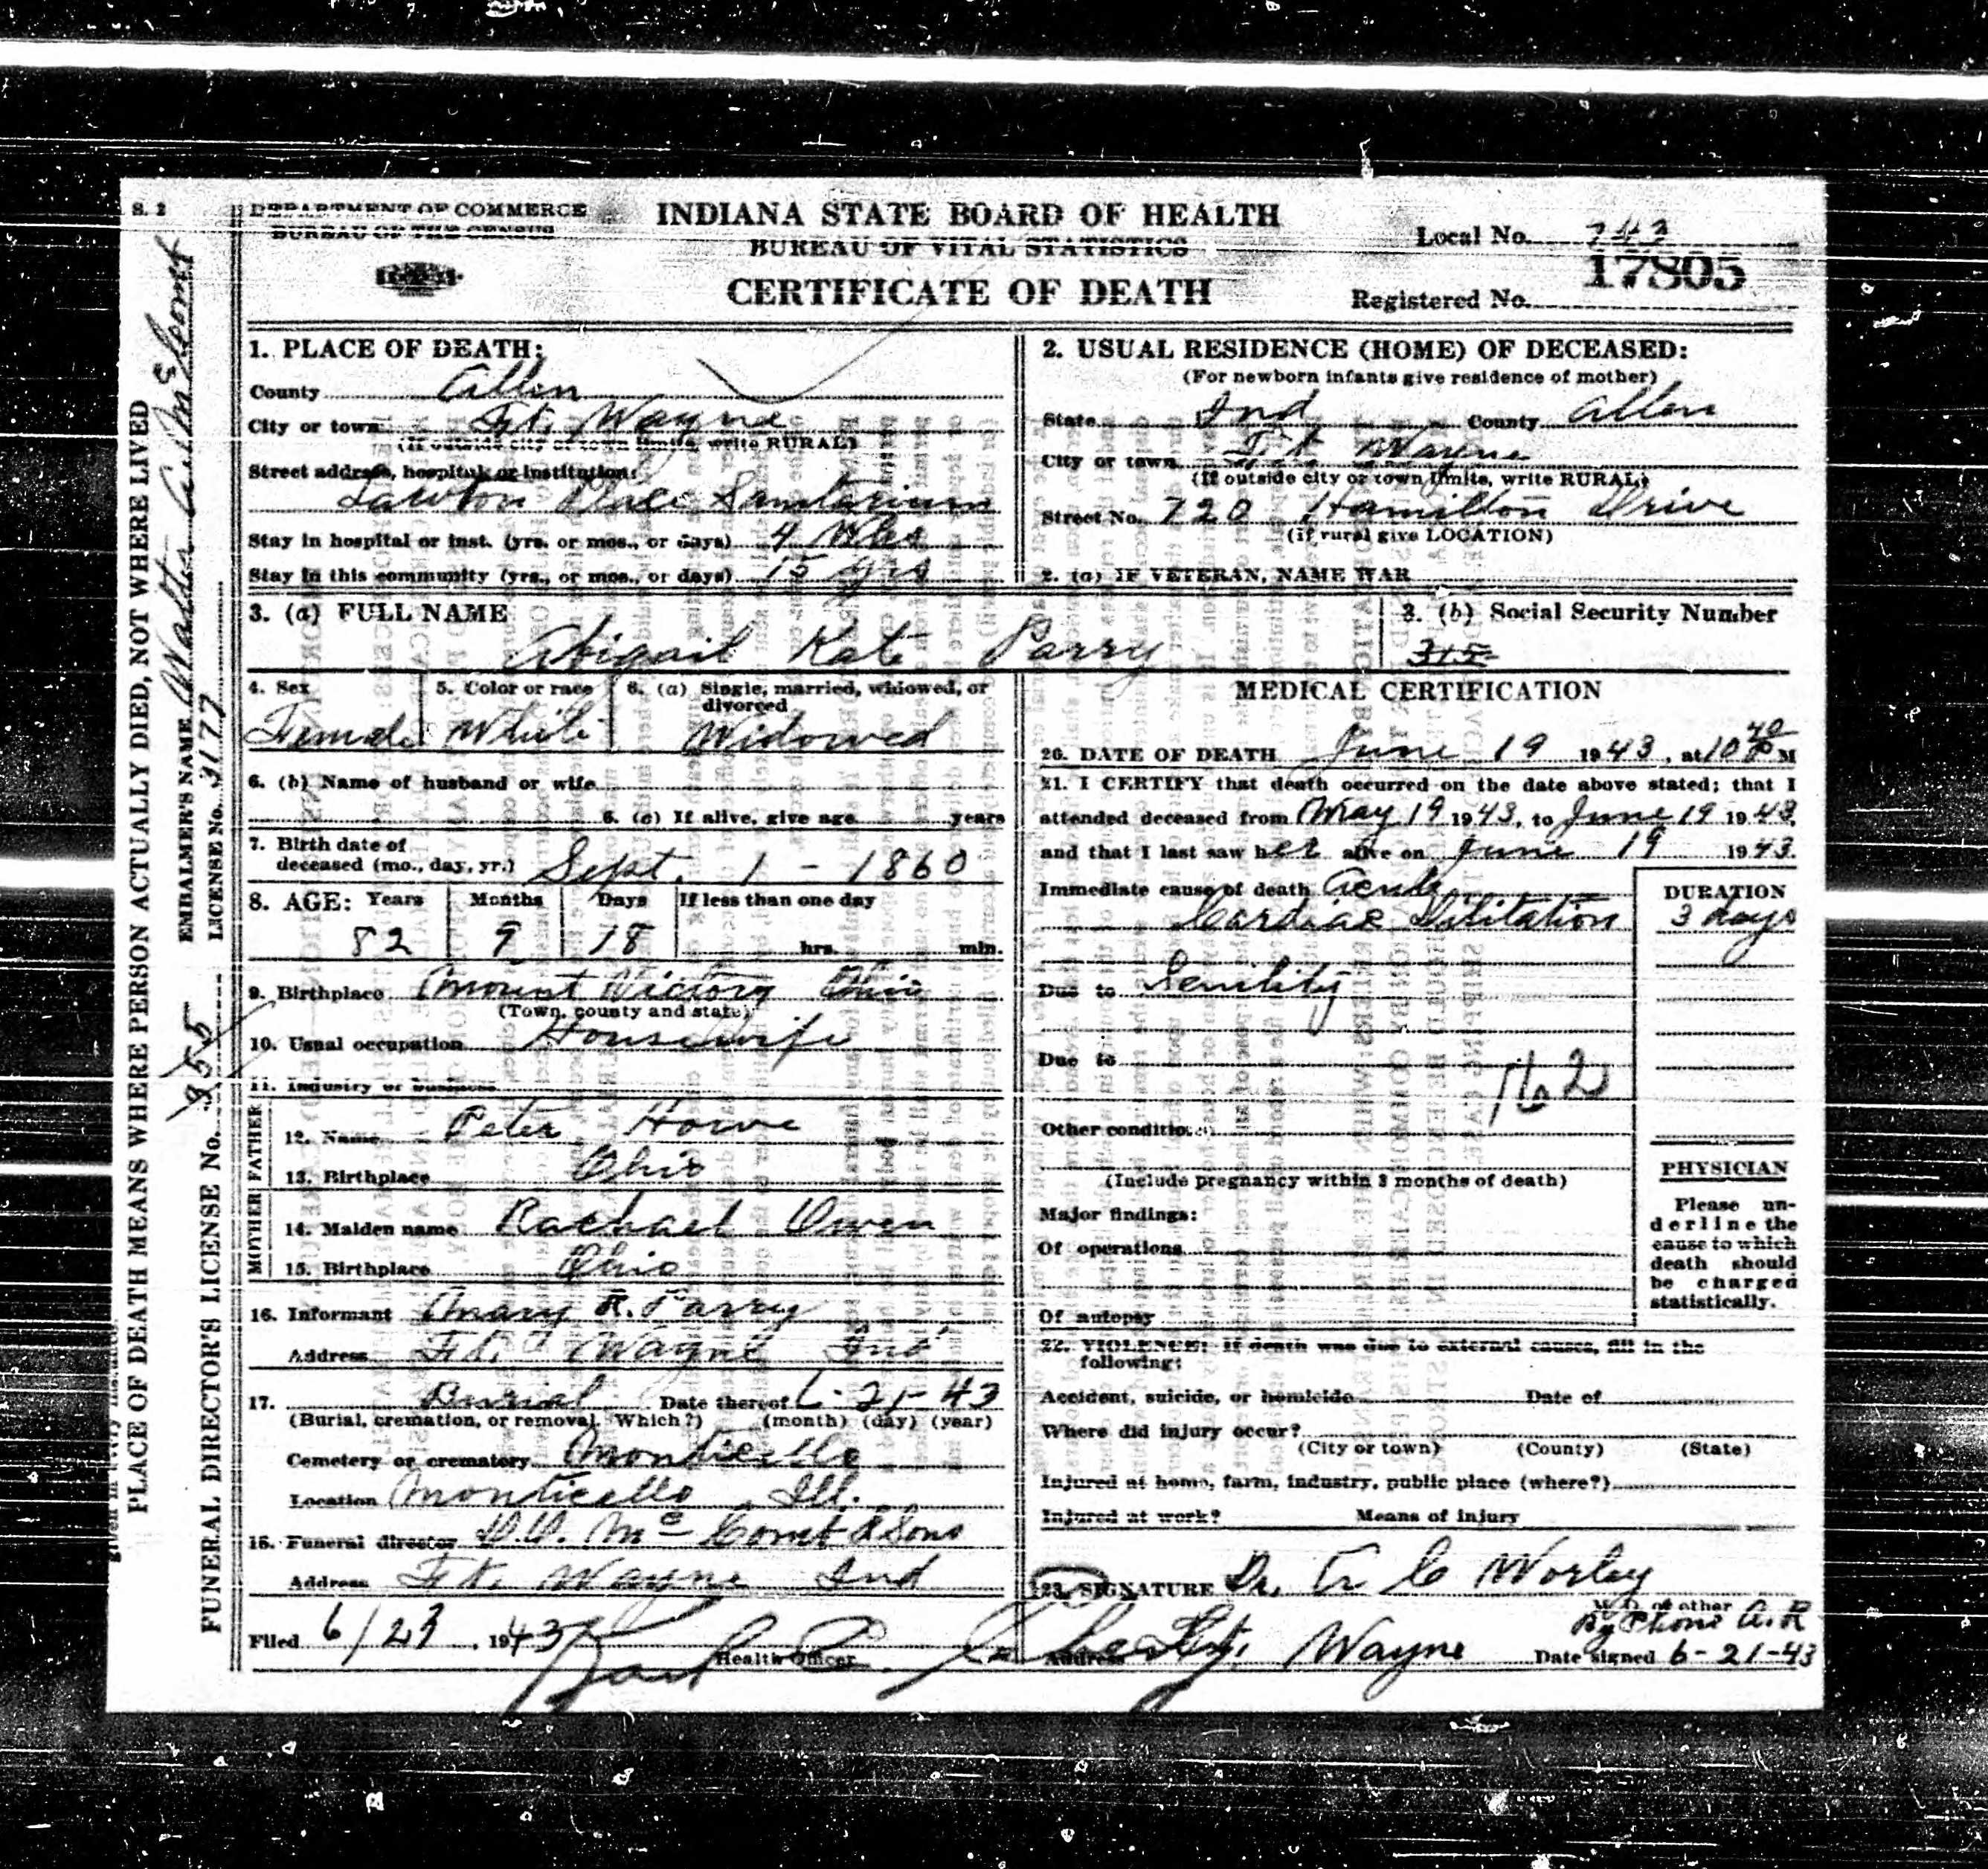 S. 2
DEPARTMENT OF COMMERCE
BUREAU OF THE CENSUS
INDIANA STATE BOARD OF HEALTH
BUREAU OF VITAL STATISTICS
CERTIFICATE OF DEATH
Local No. 743
Registered No. 17805
PLACE OF DEATH MEANS WHERE PERSON ACTUALLY DIED, NOT WHERE LIVED
EMBALMER'S NAME Walter A. McComb
LICENSE No. 3177
FUNERAL DIRECTOR'S LICENSE No. 955
1. PLACE OF DEATH:
County Allen
City or town Ft. Wayne
(If outside city or town limits, write RURAL)
Street address, hospital or institution:
Lawton Place Sanitorium
Stay in hospital or inst. (yrs. or mos., or days) 4 Wks
Stay in this community (yrs., or mos., or days) 15 yrs
2. USUAL RESIDENCE (HOME) OF DECEASED:
(For newborn infants give residence of mother)
State Ind County Allen
City or town Ft Wayne
(If outside city or town limits, write RURAL)
Street No. 720 Hamilton Drive
(if rural give LOCATION)
2. (a) IF VETERAN, NAME WAR
3. (a) FULL NAME
Abigail Kate Parry
3. (b) Social Security Number
315-
4. Sex
Female
5. Color or race
White
6. (a) Single, married, widowed, or divorced
Widowed
6. (b) Name of husband or wife
6. (c) If alive, give age years
7. Birth date of
deceased (mo., day, yr.) Sept. 1 - 1860
8. AGE: Years Months Days If less than one day
82 9 18 hrs. min.
9. Birthplace Mount Victory Ohio
(Town, county and state)
10. Usual occupation Housewife
11. Industry or business
FATHER
12. Name Peter Howe
13. Birthplace Ohio
MOTHER
14. Maiden name Rachael Owen
15. Birthplace Ohio
16. Informant Mary R. Parry
Address Ft. Wayne Ind
17. Burial Date thereof 6-21-43
(Burial, cremation, or removal. Which?) (month) (day) (year)
Cemetery or crematory Monticello
Location Monticello Ill.
18. Funeral director McComb & Sons
Address Ft. Wayne Ind
Filed 6/23, 1943
Health Officer
MEDICAL CERTIFICATION
20. DATE OF DEATH June 19 1943, at 10 40 P M
21. I CERTIFY that death occurred on the date above stated; that I
attended deceased from May 19 1943, to June 19 1943,
and that I last saw her alive on June 19 1943.
Immediate cause of death Acute
Cardiac Dilitation
DURATION
3 days
Due to Senility
Due to
162
Other conditions
(Include pregnancy within 3 months of death)
Major findings:
Of operations
Of autopsy
PHYSICIAN
Please un-
derline the
cause to which
death should
be charged
statistically.
22. VIOLENCE: If death was due to external causes, fill in the
following:
Accident, suicide, or homicide Date of
Where did injury occur?
(City or town) (County) (State)
Injured at home, farm, industry, public place (where?)
Injured at work? Means of injury
23. SIGNATURE Dr. C Worley
M. D. or other
By Phone A.R
Address Ft. Wayne Date signed 6-21-43